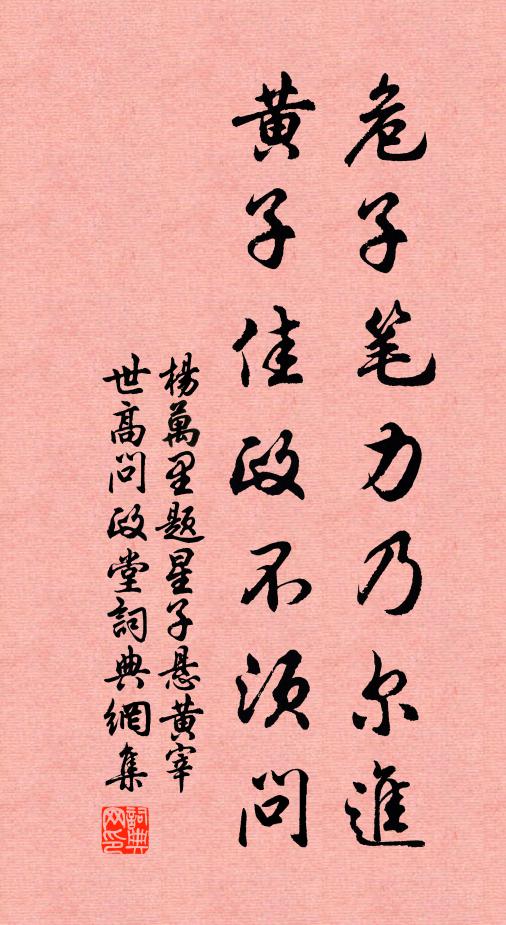 危子笔力乃尔進
黄子佳政不须問
楊萬里题星子悬黄宰
世高問政堂詞典網集
詞典网印